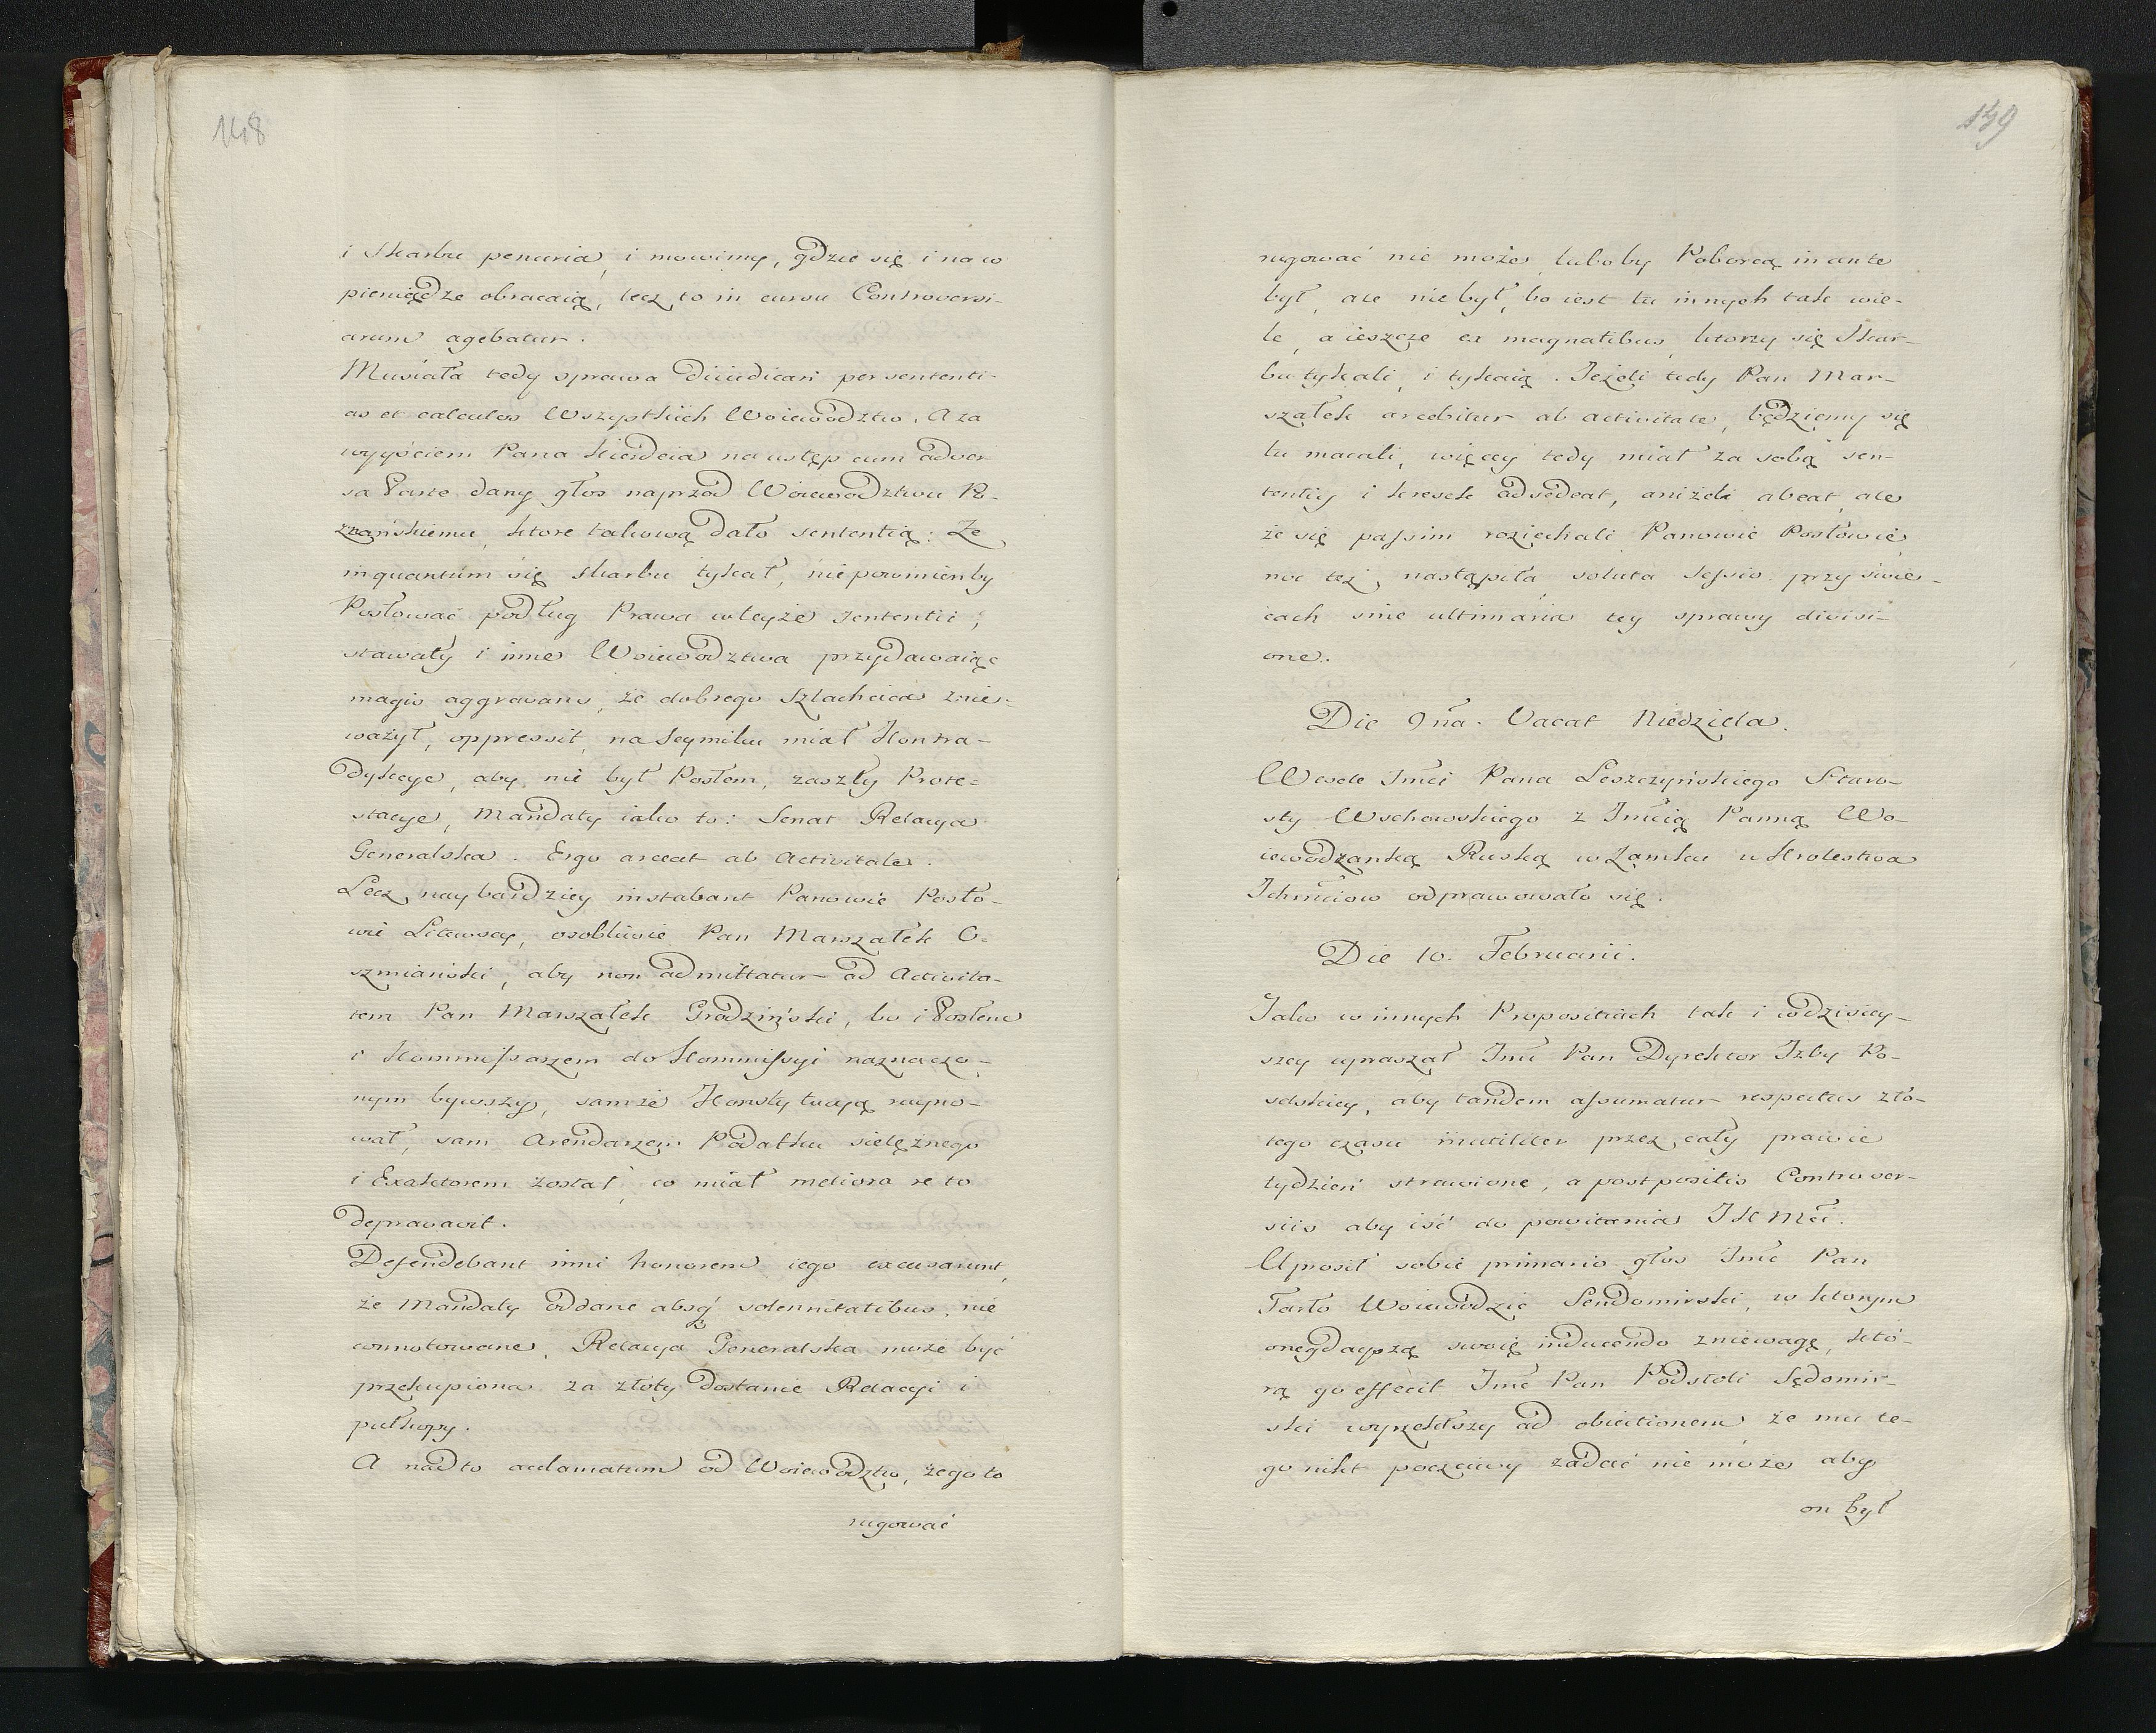 148
i Skarbu penuria, i mowimy, gdzie się i na co
pieniądze obracaią, lecz to in cursu Controversi-
arum agebatur.
Musiała tedy sprawa diiudicari per sententi-
as et calculos Wszystkich Woiewodztw. A za
wyyściem Pana Kierdeia na ustęp cum adver
sa Parte dany głos naprzod Woiewodztwu Po-
znańskiemu, ktore takową dało sententią: Ze
inquantum się skarbu tykał, niepowinienby
Posłować podług Prawa w teyże sententii,
stawały i inne Woiewodztwa przydawaiąc
magis aggravans, że dobrego Szlachcica znie-
ważył, oppressit, na Seymiku miał Kontra-
dykcye, aby nie był Posłem, zaszły Prote-
stacye, Mandaty iako to: Senat Relacya
Generalska. Ergo arceat ab Activitate.
Lecz naybardziey instabant Panowie Posło-
wie Litewscy, osobliwie Pan Marszałek O-
szmiański, aby non admittatur ad Activita-
tem Pan Marszałek Grodziński, bo i Posłem
i Kommissarzem do Kommissyi naznaczo-
nym bywszy, samże Konstytucyą ruyno-
wał, sam Arendarzem Podatku sielężnego
i Exaktorem został, co miał meliora re to
depravavit.
Defendebant inni honorem iego excusarunt,
że Mandaty oddane absq solennitatibus, nie
connotowane, Relacya Generalska może być
przekupiona za złoty dostanie Relacyi i
pułkopy.
A nadto acclamatum od Woiewodztw, że go to
rugować
149
rugować nie może, luboby Poborcą in ante
był, ale nie był, bo iest tu innych tak wie-
le, a ieszcze ex magnatibus, ktorzy się Skar-
bu tykali, i tykaią. Jeżeli tedy Pan Mar-
szałek arcebitur ab activitate, będziemy się
tu macali, więcey tedy miał za sobą sen-
tentiy i kresek adsedeat, aniżeli abeat, ale
że się passim roziechali Panowie Posłowie,
noc też nastąpiła, soluta Sessio przy świe-
cach sine ultimaria tey sprawy divisi-
one.
Die 9na. Vacat Niedziela.
Wesele Jmci Pana Leszczyńskiego Staro-
sty Wschowskiego z Jmcią Panną Wo-
iewodzanką Ruską w Zamku u Krolestwa
Ichmciow odprawowało się.
Die 10. Februarii.
Jako w innych Propositiach tak i w dzisiey-
szey upraszał Jmć Pan Dyrektor Izby Po-
selskiey, aby tandem assumatur respectus zło-
tego czasu inutiliter przez cały prawie
tydzień strawione, a postpositis Controver-
siis aby iść do powitania JKMci.
Uprosił sobie primario głos Jmć Pan
Tarło Woiewodzic Sendomirski, w ktorym
onegdayszą swoię inducendo zniewagę, któ-
rą go effecit Jmć Pan Podstoli Sędomir-
ski wyrzekłszy ad obiectionem, że mu te-
go nikt poczciwy zadać nie może aby
on był